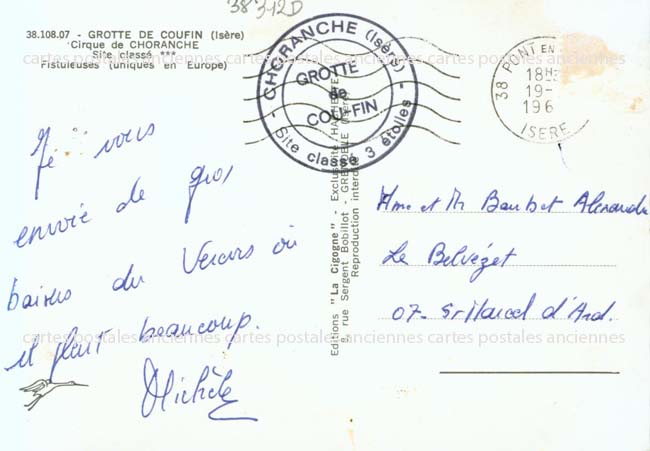 38 312D
38.108.07 - GROTTE DE COUFIN (Isère)
Cirque de CHORANCHE
Site classé ***
Fistuleuses (uniques en Europe)
Je vous
envoie de gros
baisers du Vercors où
il pleut beaucoup.
Michèle
- CHORANCHE (Isère) -
GROTTE
de
COU-FIN
Site classé 3 étoiles
38 PONT EN
18H
19-
196
ISERE
Editions "La Cigogne" - Exclusivité HACHETTE
8, rue Sergent Bobillot - GRENOBLE (Isère)
Reproduction interdite
Mme et Mr Alexandre
Le Belvézet
07- St Marcel d'Ard.
cartes postales anciennes cartes postales anciennes cartes postales anciennes
cartes postales anciennes cartes postales anciennes cartes postales anciennes
cartes postales anciennes cartes postales anciennes cartes postales anciennes